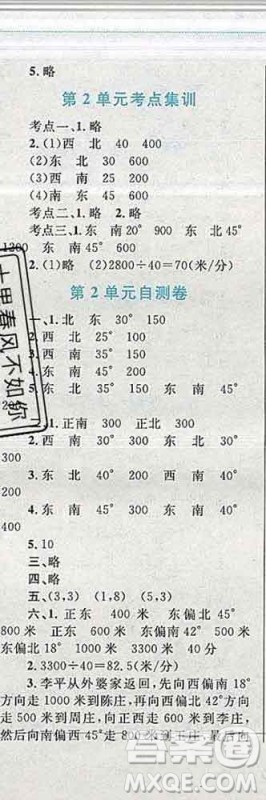 5.略
第2单元考点集训
考点一、1.略
2.(1)西 北 40 400
(2)东 北 30 600
(3)西 南 25 200
(4)东 南 20 600
考点二、1.略 2.略
考点三、1.东 南 20° 900 东 北 45°
1200 东 南 45° 600
2.(1)略 (2)2800÷40=70(米/分)
第2单元自测卷
一、1.北 东 30° 150
2.西 北 25° 100
3.东 南 30° 200
4.西 南 45° 150
5.东 北 35° 东 南 45°
1.正南 300 正北 300
2.西 南 30° 300 东 北 30°
300
3.东 北 40° 200 西 南 40°
200
4.东 南 30° 东 南 40°
5.10
三、略
四、略
五、(3,3) (1,8) (5,3)
六、1.正东 400米 东偏北45°
800米 正东 600米 东偏南18°
500米
2.3300÷40=82.5(米/分)
3.李平从外婆家返回,先向西偏南18°
方向走1000米到陈庄,再向正西走1000
米到周庄,向正西走500米到李庄,
然后向南偏西45°方向走1000米,最后向
士里春风不如你
作业帮答案